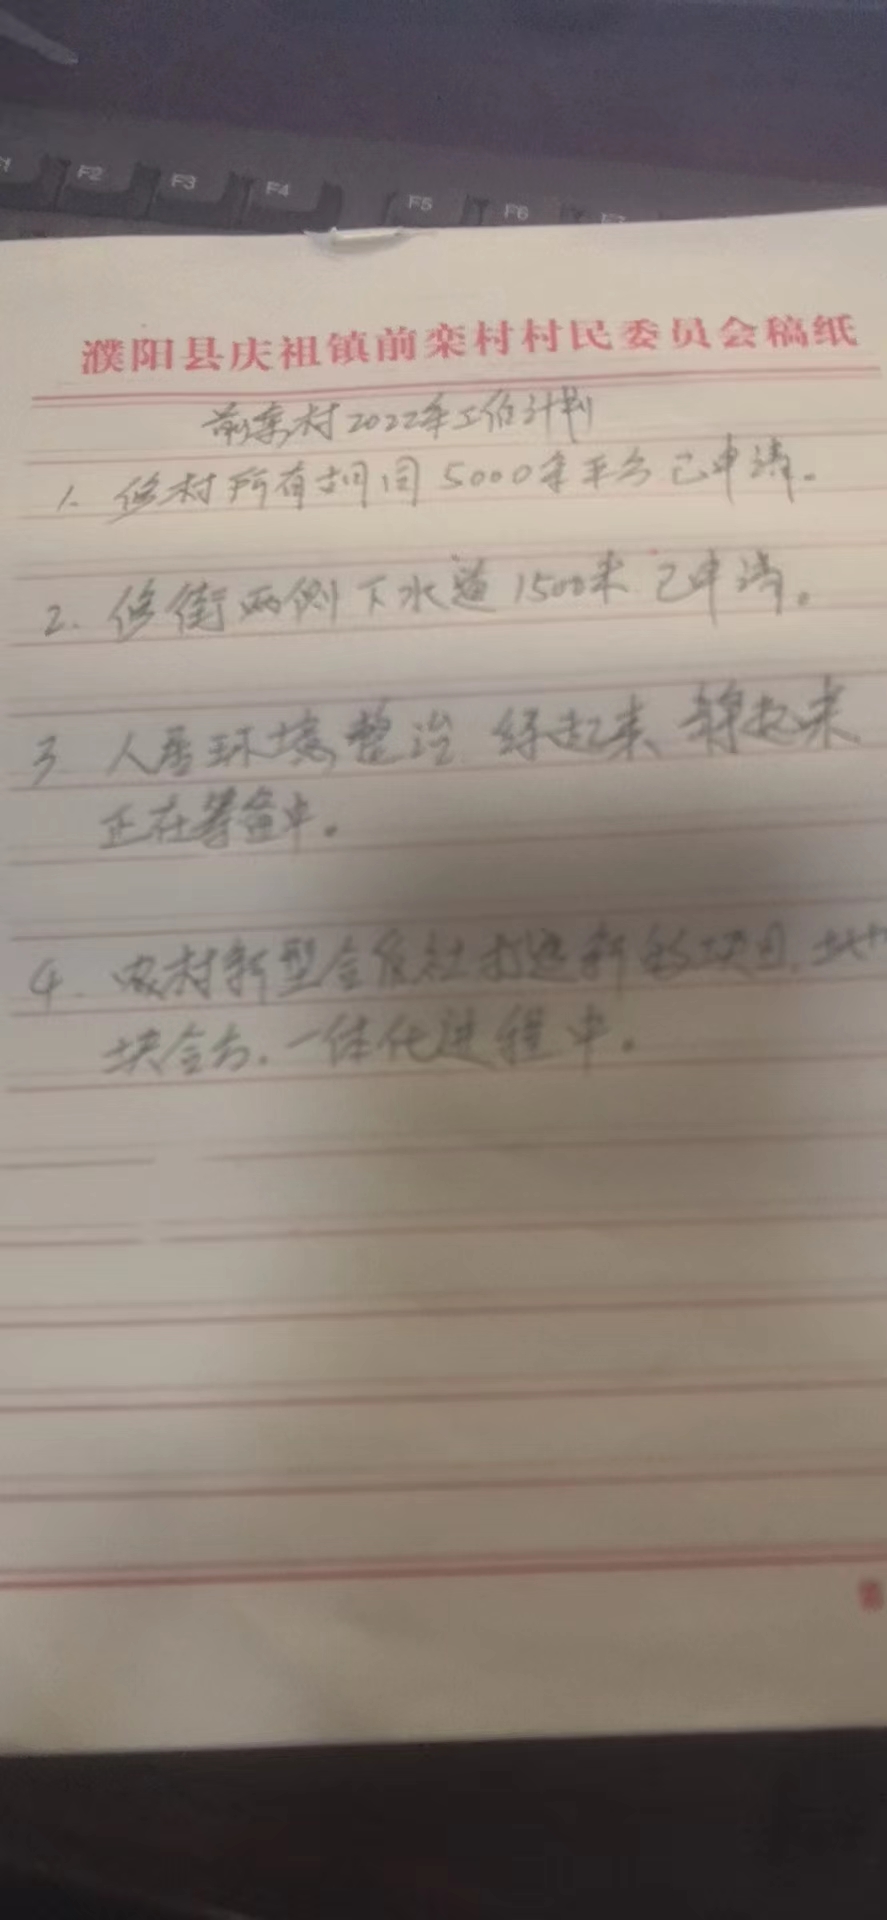 F2 F3 F4 F5 F6 F7
濮阳县庆祖镇前栾村村民委员会稿纸
前栾村2022年工作计划
1. 修村所有胡同5000余平方已申请。
2. 修街两侧下水道1500米已申请。
3. 人居环境整治 绿起来、亮起来
正在筹备中。
4. 农村新型合作社打造新的项目,
块合方,一体化进程中。
第